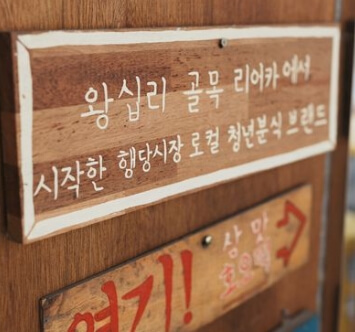 왕십리 골목 리어카에서
시작한 행당시장 로컬 청년분식 브랜드
여기!